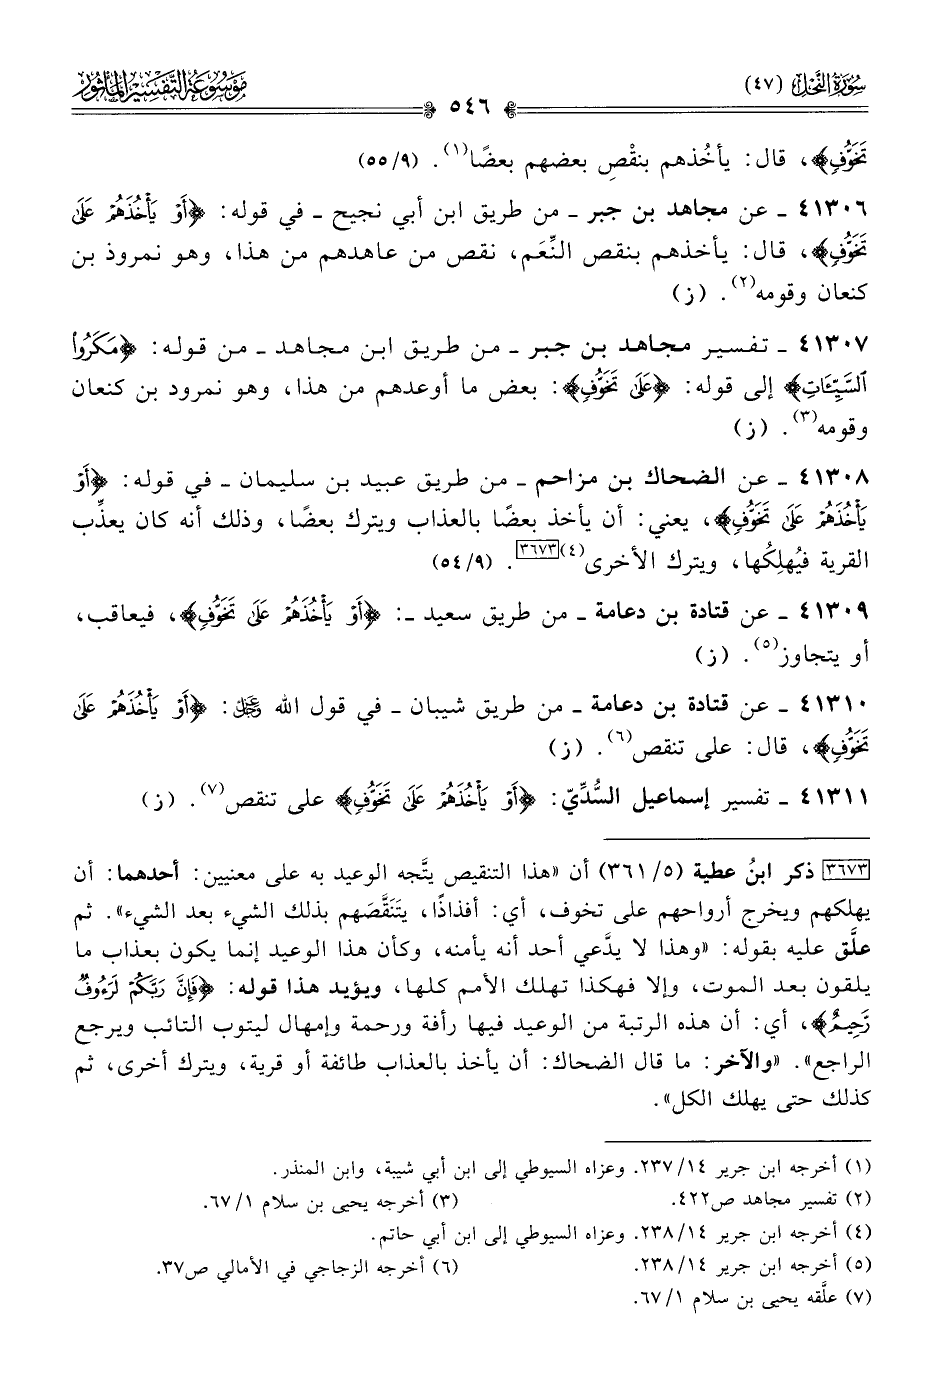 سُورَةُ النَّحْلِ (٤٧)
٥٤٦
مَوْسُوعَةُ التَّفْسِيرِ المَأْثُورِ
تَخَوُّفٍ﴾، قال: يأخُذهم بنقْصِ بعضهم بعضًا(١). (٥٥/٩)
٤١٣٠٦ ـ عن مجاهد بن جبر ـ من طريق ابن أبي نجيح ـ في قوله: ﴿أَوْ يَأْخُذَهُمْ عَلَىٰ
تَخَوُّفٍ﴾، قال: يأخذهم بنقص النِّعَم، نقص من عاهدهم من هذا، وهو نمروذ بن
كنعان وقومه(٢). (ز)
٤١٣٠٧ ـ تفسير مجاهد بن جبر ـ من طريق ابن مجاهد ـ من قوله: ﴿مَكَرُوا۟
ٱلسَّيِّـَٔاتِ﴾ إلى قوله: ﴿عَلَىٰ تَخَوُّفٍ﴾: بعض ما أوعدهم من هذا، وهو نمرود بن كنعان
وقومه(٣). (ز)
٤١٣٠٨ ـ عن الضحاك بن مزاحم ـ من طريق عبيد بن سليمان ـ في قوله: ﴿أَوْ
يَأْخُذَهُمْ عَلَىٰ تَخَوُّفٍ﴾، يعني: أن يأخذ بعضًا بالعذاب ويترك بعضًا، وذلك أنه كان يعذِّب
القرية فيُهلِكُها، ويترك الأخرى(٤)[٣٦٧٣]. (٥٤/٩)
٤١٣٠٩ ـ عن قتادة بن دعامة ـ من طريق سعيد ـ: ﴿أَوْ يَأْخُذَهُمْ عَلَىٰ تَخَوُّفٍ﴾، فيعاقب،
أو يتجاوز(٥). (ز)
٤١٣١٠ ـ عن قتادة بن دعامة ـ من طريق شيبان ـ في قول الله ﷿: ﴿أَوْ يَأْخُذَهُمْ عَلَىٰ
تَخَوُّفٍ﴾، قال: على تنقص(٦). (ز)
٤١٣١١ ـ تفسير إسماعيل السُّدِّيّ: ﴿أَوْ يَأْخُذَهُمْ عَلَىٰ تَخَوُّفٍ﴾ على تنقص(٧). (ز)
[٣٦٧٣] ذكر ابنُ عطية (٥/ ٣٦١) أن «هذا التنقيص يتَّجه الوعيد به على معنيين: أحدهما: أن
يهلكهم ويخرج أرواحهم على تخوف، أي: أفذاذًا، يَتَنَقَّصَهم بذلك الشيء بعد الشيء». ثم
علَّق عليه بقوله: «وهذا لا يدَّعي أحد أنه يأمنه، وكأن هذا الوعيد إنما يكون بعذاب ما
يلقون بعد الموت، وإلا فهكذا تهلك الأمم كلها، ويؤيد هذا قوله: ﴿فَإِنَّ رَبَّكُمْ لَرَءُوفٌ
رَّحِيمٌ﴾، أي: أن هذه الرتبة من الوعيد فيها رأفة ورحمة وإمهال ليتوب التائب ويرجع
الراجع». «والآخر: ما قال الضحاك: أن يأخذ بالعذاب طائفة أو قرية، ويترك أخرى، ثم
كذلك حتى يهلك الكل».
(١) أخرجه ابن جرير ١٤/ ٢٣٧. وعزاه السيوطي إلى ابن أبي شيبة، وابن المنذر.
(٢) تفسير مجاهد ص٤٢٢. (٣) أخرجه يحيى بن سلام ١/ ٦٧.
(٤) أخرجه ابن جرير ١٤/ ٢٣٨. وعزاه السيوطي إلى ابن أبي حاتم.
(٥) أخرجه ابن جرير ١٤/ ٢٣٨. (٦) أخرجه الزجاجي في الأمالي ص٣٧.
(٧) علَّقه يحيى بن سلام ١/ ٦٧.